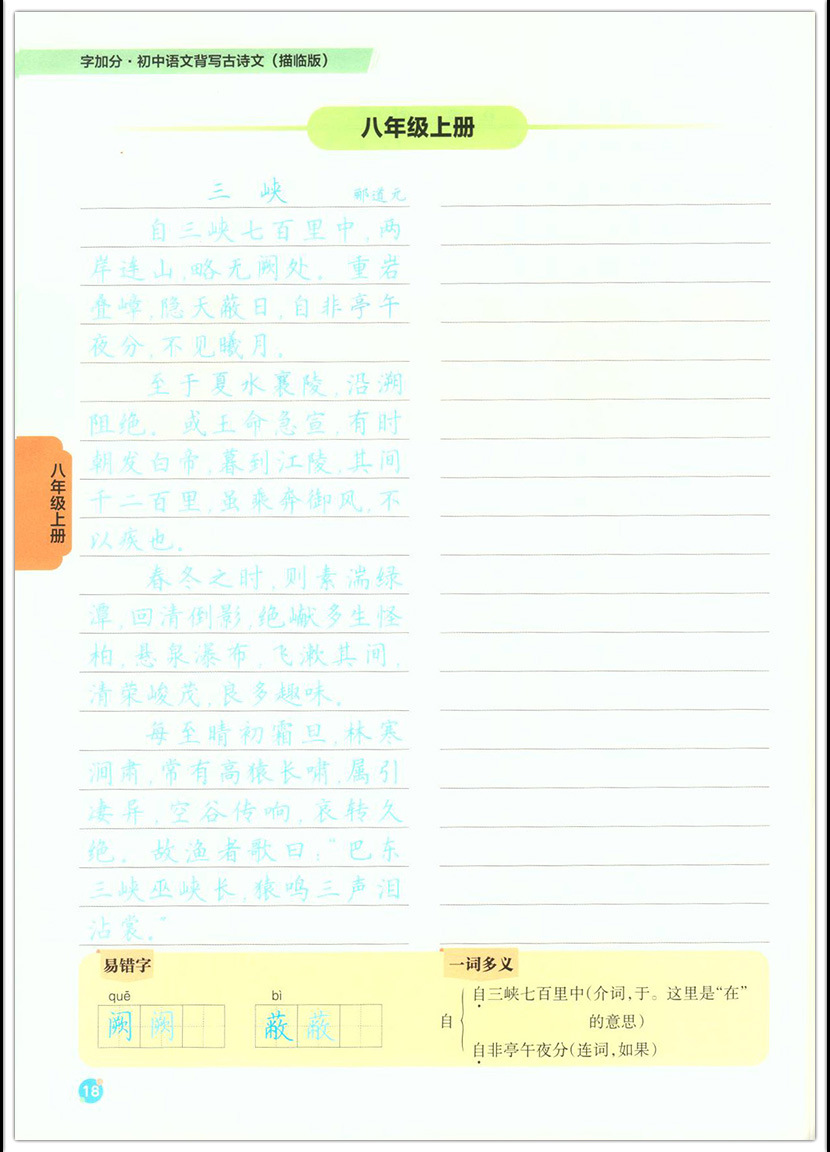 字加分·初中语文背写古诗文（描临版）
八年级上册
三 峡 郦道元
自三峡七百里中，两
岸连山，略无阙处。重岩
叠嶂，隐天蔽日，自非亭午
夜分，不见曦月。
至于夏水襄陵，沿溯
阻绝。或王命急宣，有时
朝发白帝，暮到江陵，其间
千二百里，虽乘奔御风，不
以疾也。
春冬之时，则素湍绿
潭，回清倒影，绝巘多生怪
柏，悬泉瀑布，飞漱其间，
清荣峻茂，良多趣味。
每至晴初霜旦，林寒
涧肃，常有高猿长啸，属引
凄异，空谷传响，哀转久
绝。故渔者歌曰：“巴东
三峡巫峡长，猿鸣三声泪
沾裳。”
八年级上册
易错字
quē bì
阙 阙 蔽 蔽
一词多义
自
自三峡七百里中（介词，于。这里是“在”
的意思）
自非亭午夜分（连词，如果）
18